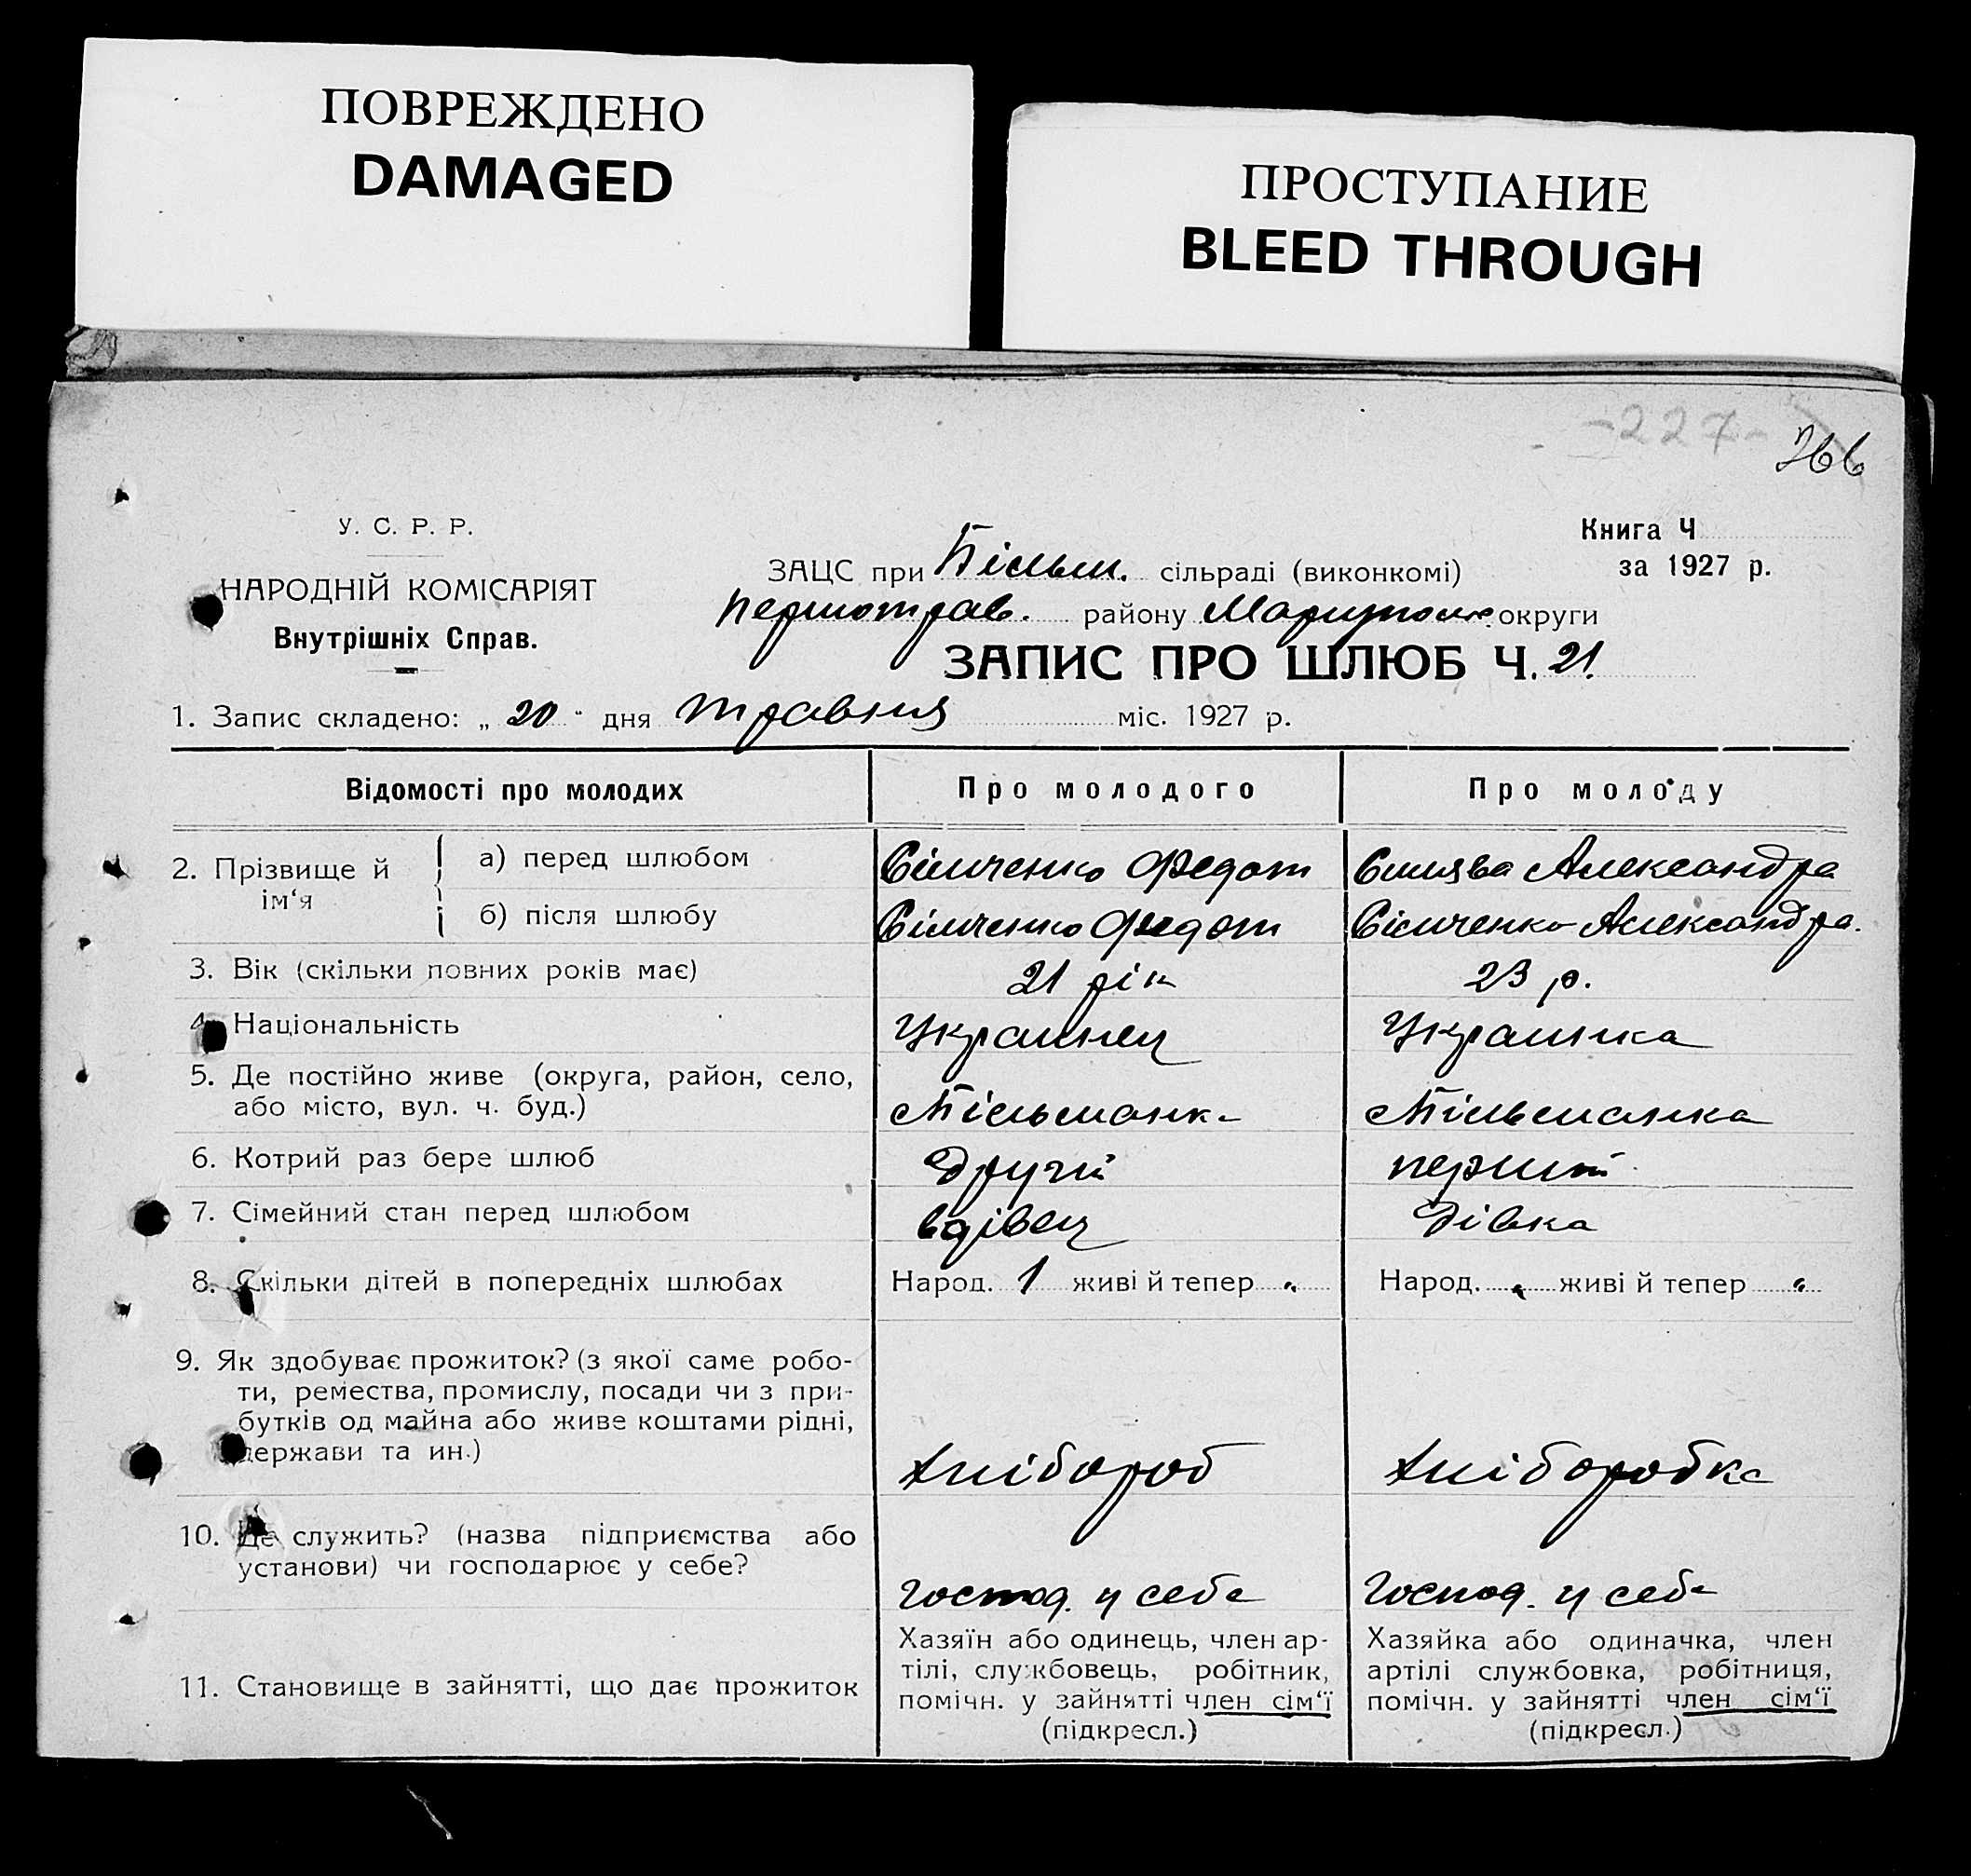 ПОВРЕЖДЕНО
DAMAGED
ПРОСТУПАНИЕ
BLEED THROUGH
-227-
766
У. С. Р. Р.
НАРОДНІЙ КОМІСАРІЯТ
Внутрішніх Справ.
Книга Ч
за 1927 р.
ЗАЦС при Кільм. сільраді (виконкомі)
Першотрав. району Маріупольс. округи
ЗАПИС ПРО ШЛЮБ Ч. 21.
1. Запис складено: „ 20 " дня травня міс. 1927 р.
Відомості про молодих Про молодого Про молоду
2. Прізвище й ім'я
а) перед шлюбом Федот Александра
б) після шлюбу Федот Александра.
3. Вік (скільки повних років має) 21 рік 23 р.
4. Національність Украинец Украинка
5. Де постійно живе (округа, район, село,
або місто, вул. ч. буд.)
6. Котрий раз бере шлюб другий перший
7. Сімейний стан перед шлюбом вдівец дівка
8. Скільки дітей в попередніх шлюбах Народ. 1 живі й тепер „ Народ. „ живі й тепер „
9. Як здобуває прожиток? (з якої саме робо-
ти, ремества, промислу, посади чи з при-
бутків од майна або живе коштами рідні,
держави та ин.) хлібороб хліборобка
10. Де служить? (назва підприємства або
установи) чи господарює у себе? господ. у себе господ. у себе
11. Становище в зайнятті, що дає прожиток
Хазяїн або одинець, член ар-
тілі, службовець, робітник,
помічн. у зайнятті член сім'ї
(підкресл.)
Хазяйка або одиначка, член
артілі службовка, робітниця,
помічн. у зайнятті член сім'ї
(підкресл.)